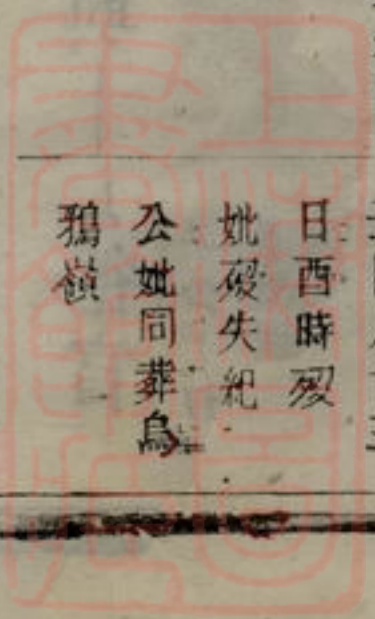 日酉時歿
妣歿失紀
公妣同葬烏
鴉嶺